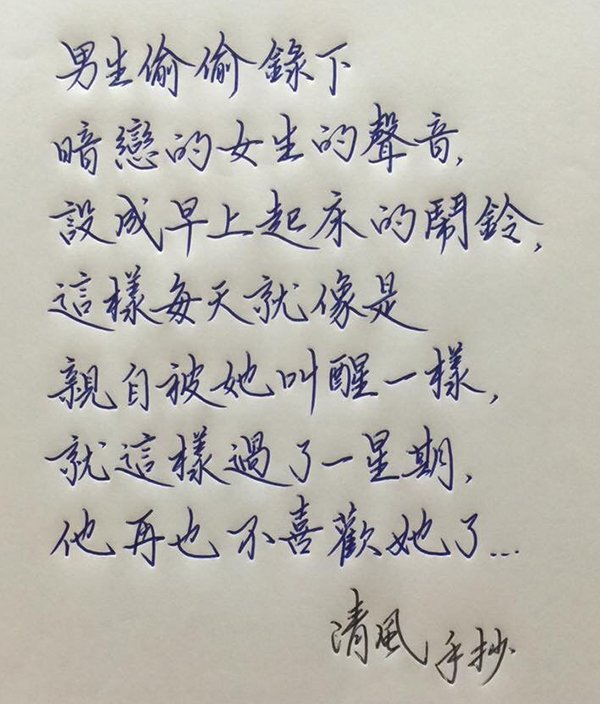 男生偷偷錄下
暗戀的女生的聲音,
設成早上起床的鬧鈴,
這樣每天就像是
親自被她叫醒一樣,
就這樣過了一星期,
他再也不喜歡她了...
清風 手抄